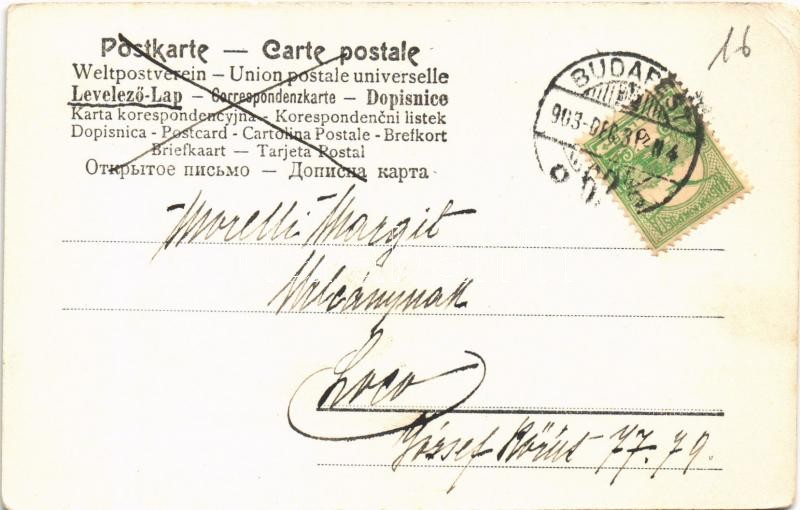 Postkarte — Carte postale
Weltpostverein – Union postale universelle
Levelező-Lap – Correspondenzkarte – Dopisnice
Karta korespondencyjna – Korespondenčni listek
Dopisnica - Postcard - Cartolina Postale - Brefkort
Briefkaart — Tarjeta Postal
Открытое письмо — Дописна карта
16
BUDAPEST
903 DEC 31
Morelli Margit
Loco
József Körút 77.79.